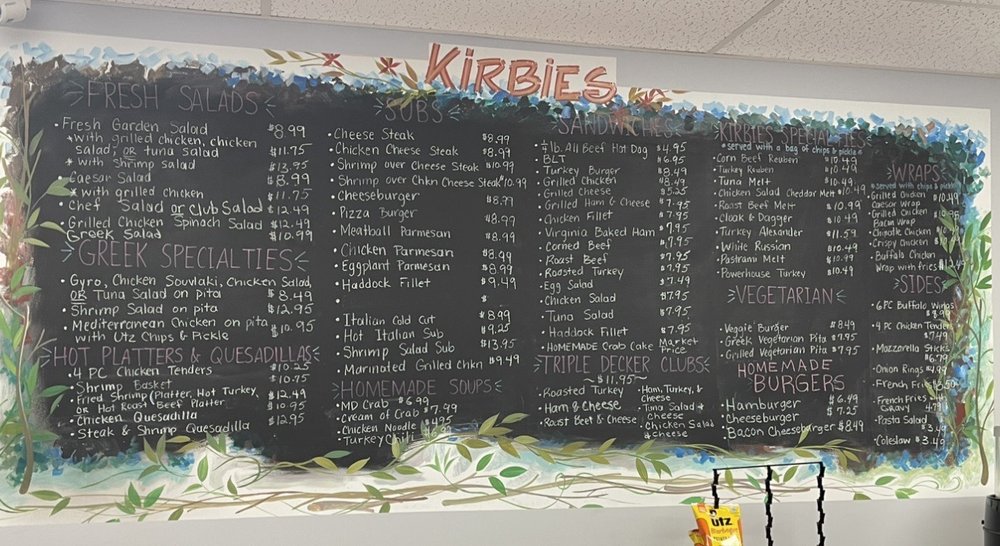 KiRBiES
FRESH SALADS
• Fresh Garden Salad $8.99
* with grilled chicken, chicken
salad, OR tuna salad $11.75
* with shrimp salad $13.95
• Caesar Salad $8.99
* with grilled chicken $11.75
• Chef Salad or Club Salad $12.49
• Grilled Chicken Spinach Salad $12.49
• Greek Salad $10.99
GREEK SPECIALTIES
• Gyro, Chicken Souvlaki, Chicken Salad,
OR Tuna Salad on pita $8.49
• Shrimp Salad on pita $12.95
• Mediterranean Chicken on pita $10.95
with Utz Chips & Pickle
HOT PLATTERS & QUESADILLAS
• 4 PC Chicken Tenders $10.25
• Shrimp Basket $10.75
• Fried Shrimp (Platter, Hot Turkey,
or Hot Roast Beef Platter $12.49
• Chicken Quesadilla $10.95
• Steak & Shrimp Quesadilla $12.95
SUBS
• Cheese Steak $8.99
• Chicken Cheese Steak $8.99
• Shrimp over Cheese Steak $10.99
• Shrimp over Chkn Cheese Steak $10.99
• Cheeseburger $8.99
• Pizza Burger $8.99
• Meatball Parmesan $8.99
• Chicken Parmesan $8.99
• Eggplant Parmesan $8.99
• Haddock Fillet $9.49
• $
• Italian Cold Cut $8.99
• Hot Italian Sub $9.25
• Shrimp Salad Sub $13.95
• Marinated Grilled Chkn $9.49
HOMEMADE SOUPS
• MD Crab $6.99
• Cream of Crab $7.99
• Chicken Noodle
• Turkey Chili
SANDWICHES
• ¼ lb. All Beef Hot Dog $4.95
• BLT $6.95
• Turkey Burger $8.49
• Grilled Chicken $8.49
• Grilled Cheese $5.25
• Grilled Ham & Cheese $7.95
• Chicken Fillet $7.95
• Virginia Baked Ham $7.95
• Corned Beef $7.95
• Roast Beef $7.95
• Roasted Turkey $7.95
• Egg Salad $7.49
• Chicken Salad $7.95
• Tuna Salad $7.95
• Haddock Fillet $7.95
• HOMEMADE Crab Cake Market Price
TRIPLE DECKER CLUBS
~ $11.95 ~
• Roasted Turkey
• Ham & Cheese
• Roast Beef & Cheese
• Ham, Turkey, &
Cheese
• Tuna Salad &
Cheese
• Chicken Salad
& Cheese
KIRBIES SPECIALTIES
* served with a bag of chips & pickle *
• Corn Beef Reuben $10.49
• Turkey Reuben $10.49
• Tuna Melt $10.49
• Chicken Salad Cheddar Melt $10.49
• Roast Beef Melt $10.99
• Cloak & Dagger $10.49
• Turkey Alexander $11.59
• White Russian $10.49
• Pastrami Melt $10.49
• Powerhouse Turkey $10.49
VEGETARIAN
• Veggie Burger $8.49
• Greek Vegetarian Pita $7.95
• Grilled Vegetarian Pita $7.95
HOMEMADE
BURGERS
• Hamburger $6.99
• Cheeseburger $7.25
• Bacon Cheeseburger $8.49
WRAPS
* served with chips & pickle
• Grilled Chicken $10.49
Caesar Wrap
• Grilled Chicken
Bacon Wrap
• Chipotle Chicken
• Crispy Chicken
• Buffalo Chicken
Wrap with fries
SIDES
• 6 PC Buffalo Wings
$8.99
• 4 PC Chicken Tenders
$7.49
• Mozzarella Sticks
$6.79
• Onion Rings
• French Fries
• French Fries &
Gravy
• Pasta Salad
• Coleslaw $3.49
utz